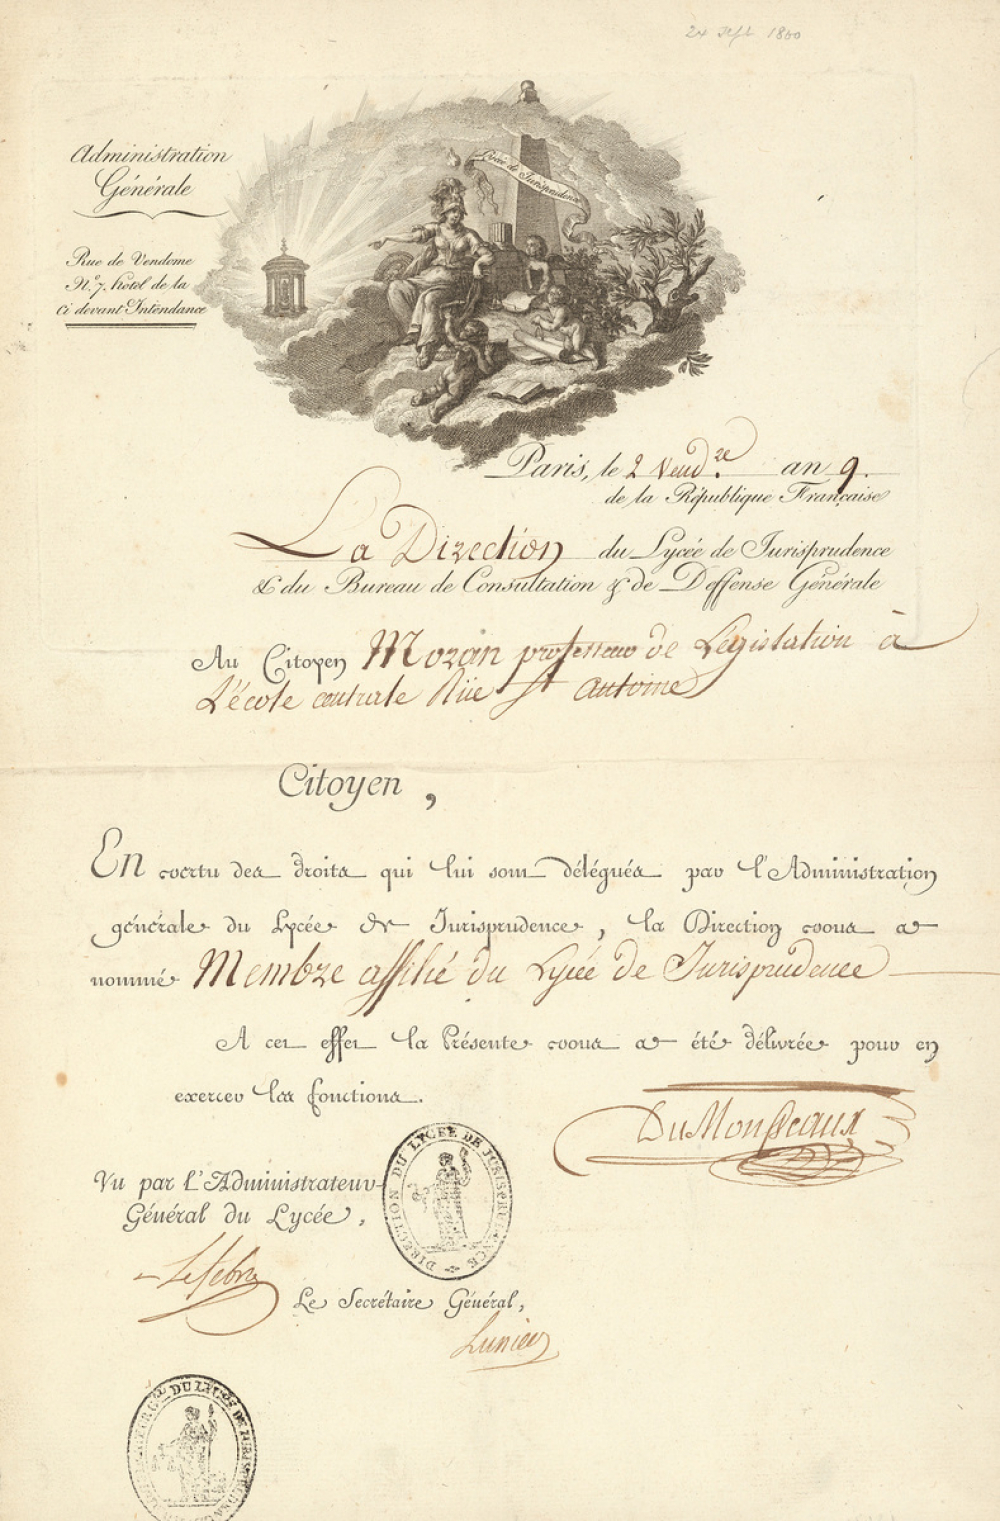 24 Sept 1800
Administration
Générale
Rue de Vendome
N.º 7. hôtel de la
ci devant Intendance
Lycée de Jurisprudence
Paris, le 2 Vend.re an 9.
de la République Française
La Direction du Lycée de Jurisprudence
& du Bureau de Consultation & de Deffense Générale
Au Citoyen Moran professeur de Législation à
L'école centrale Rüe St antoine
Citoyen,
En vertu des droits qui lui sont délégués par l'Administration
générale du Lycée de Jurisprudence, la Direction vous a
nommé Membre affilié du Lycée de Jurisprudence
A cet effet la Présente vous a été délivrée pour en
exercer les fonctions.
DuMonceaux
DIRECTION DU LYCEE DE JURISPRUDENCE
Vu par l'Administrateur
Général du Lycée,
Lefebvre
Le Secrétaire Général,
Lunier
DU LYCEE DE JURISPRUDENCE